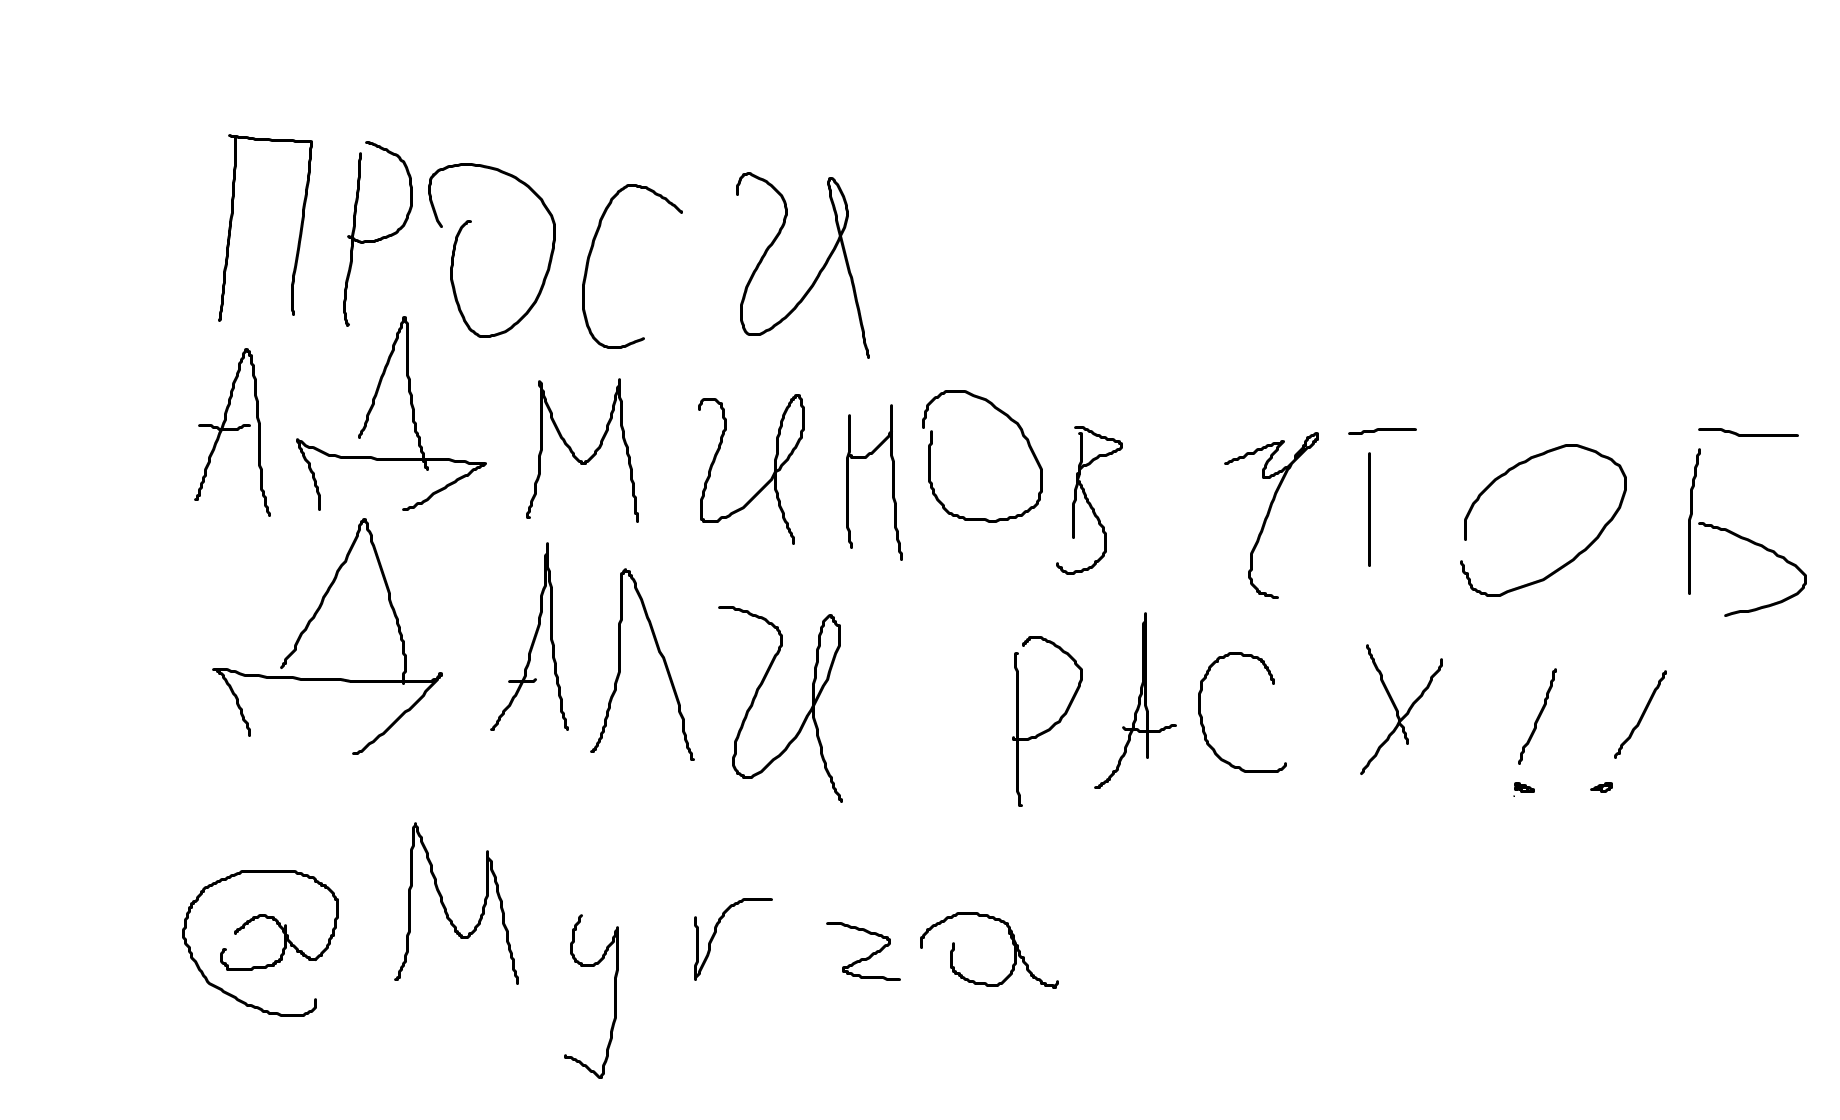 ПРОСИ
АДМИНОВ ЧТОБ
ДАЛИ РАСХ!!
@Myrza